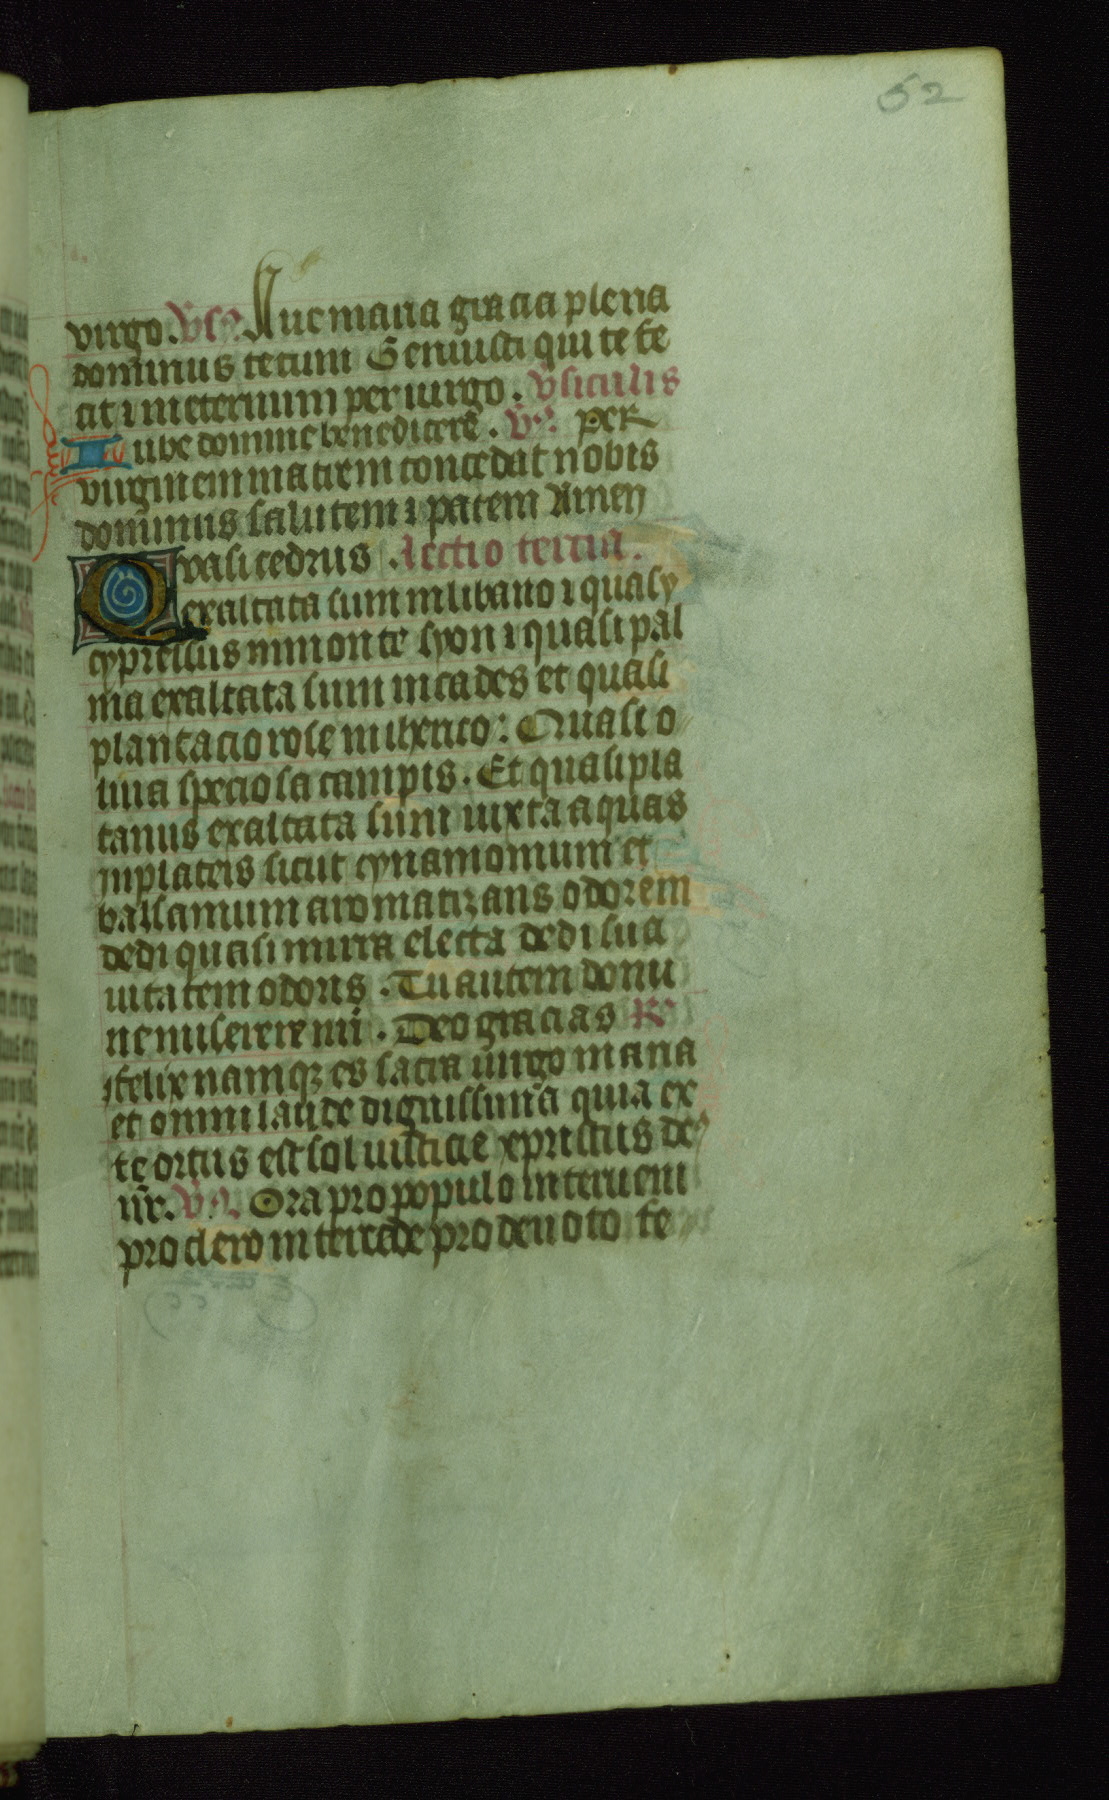 52
virgo. vs. Aue maria gracia plena
dominus tecum Genuisti qui te fe
cit ⁊ in eternum per uirgo. vsiculis
Iube domine benedicere. vs. per
virginem matrem concedat nobis
dominus salutem ⁊ patem Amen
Qvasi cedrus. lectio tercia.
exaltata sum in libano ⁊ quasy
cypressus in monte syon ⁊ quasi pal
ma exaltata sum in cades et quasi
plantacio rose in iherico: Quasi o
liua speciosa campis. Et quasi pla
tanus exaltata sum iuxta aquas
in plateis sicut cynamomum et
balsamum aromatizans odorem
dedi quasi mirra electa dedi sua
uitatem odoris. Tu autem domi
ne miserere mi. Deo gracias R
felix namqꝫ es sacra uirgo maria
et omni laude dignissima quia ex
te ortus est sol iusticie xpristus de
us. vs. Ora pro populo interueni
pro clero intercede pro deuoto fe